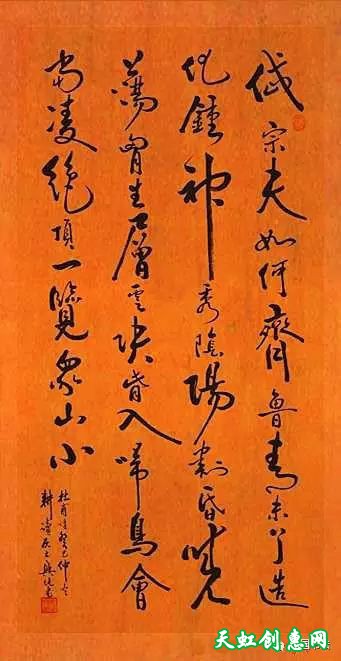 岱宗夫如何齊魯青未了造
化鍾神秀陰陽割昏曉
蕩胸生層雲決眥入歸鳥會
當凌絶頂一覽衆山小
杜甫詩癸巳仲
耕讀
天虹创惠网